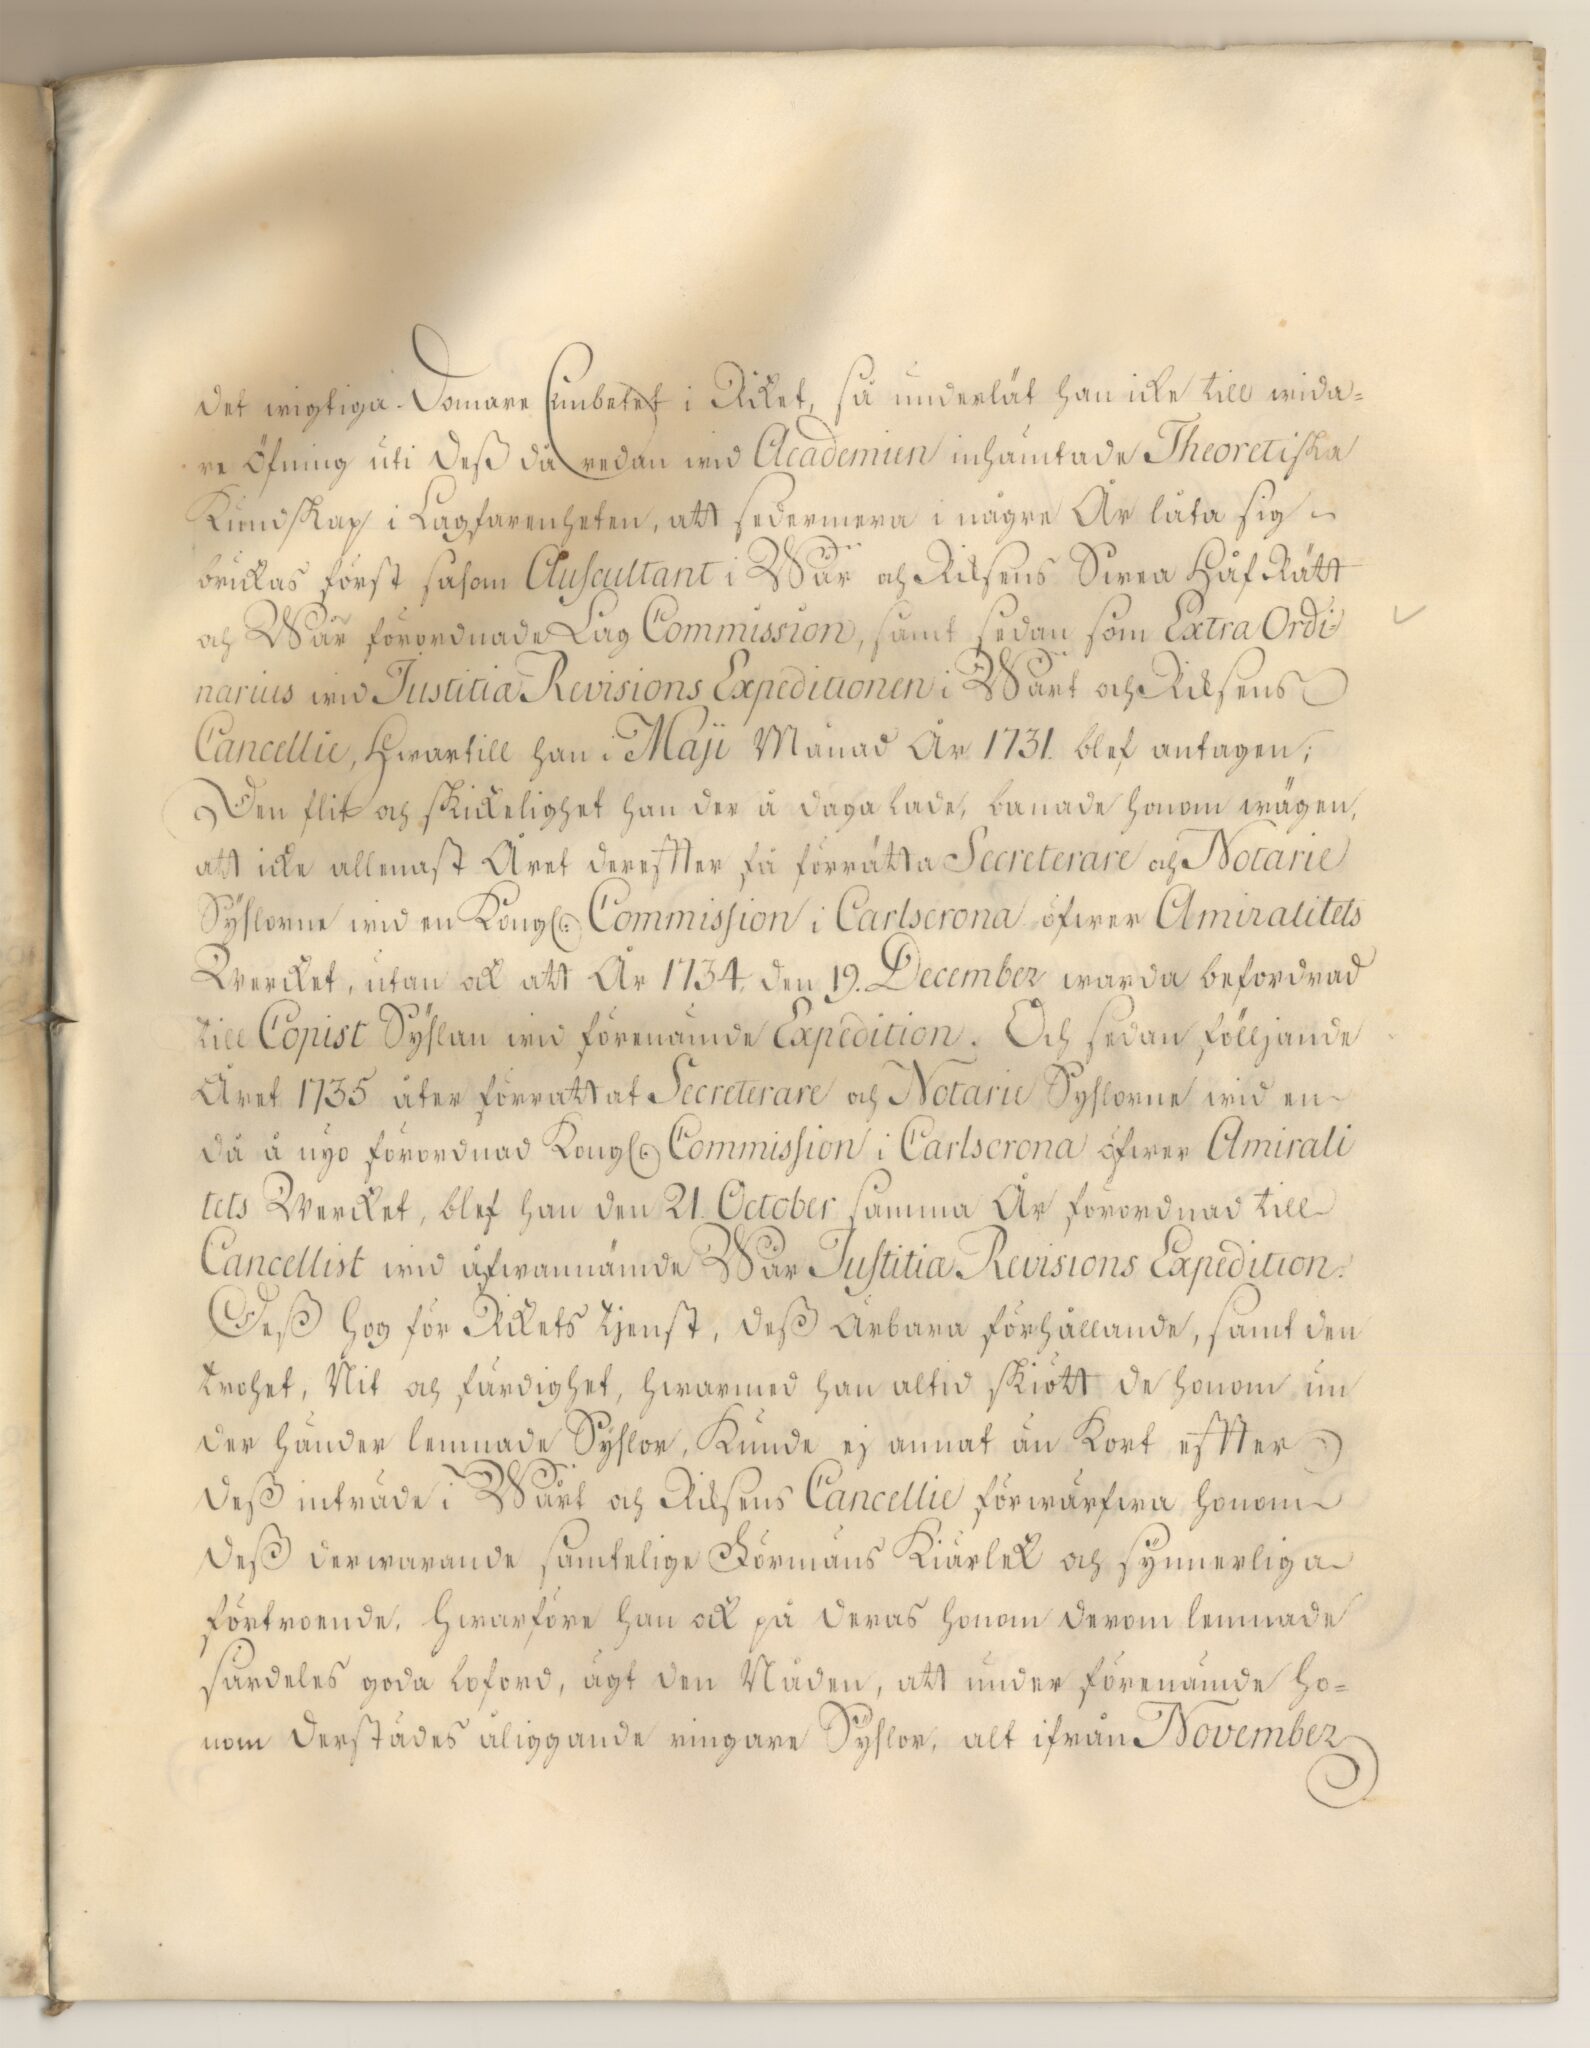 det wigtiga Domare Embetet i Riket, så underlät han icke till wida=
re Öfning uti deß då redan wid Academien inhämtade Theoretiska
Kundskap i Lagfarenheten, att sedermera i någre År låta sig
bruckas först såsom Auscultant i Wår och Riksens Swea HåfRätt
och Wår förordnade Lag Commission, samt sedan som Extra Ordi
narius wid Justitiæ Revisions Expeditionen i Wårt och Riksens
Cancellie, Hwartill han i Maji Månad År 1731. blef antagen;
Den flit och skickelighet han der å daga lade, banade honom wägen,
att icke allenast Året derefter få förrätta Secreterare och Notarie
Syslorne wid en Kongl: Commission i Carlscrona öfwer Amiralitets
Wercket, utan ock att År 1734. den 19. December warda befordrad
till Copist Syslan wid förenämde Expedition. Och sedan följjande
Året 1735 åter förrättat Secreterare och Notarie Syslorne wid en
då å nyo förordnad Kongl: Commission i Carlscrona öfwer Amirali
tets Wercket, blef han den 21. October samma År förordnad till
Cancellist wid åfwannämde Wår Justitiæ Revisions Expedition.
Deß hog för Rikets tjenst, deß ärbara förhållande, samt den
trohet, Nit och färdighet, hwarmed han altid skiött de honom un
der händer lemnade Syslor, Kunde ej annat än Kort efter
deß inträde i Wårt och Riksens Cancellie förwärfwa honom
deß derwarande samtelige Förmäns Kiärlek och synnerliga
förtroende. Hwarföre han ock på deras honom derom lemnade
särdeles goda loford, ägt den Nåden, att under förenämde ho=
nom derstädes åliggande ringare Syslor, alt ifrån November